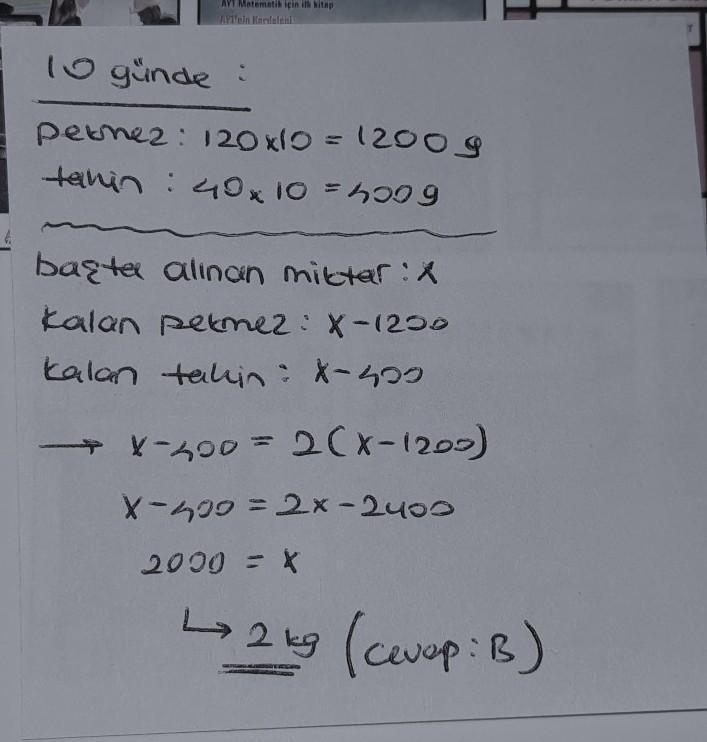 AYT Matematik için ilk kitap
AYT'nin Kardeleni
10 günde :
pekmez : 120x10 = 1200 g
tahin : 40x10 = 400g
başta alınan miktar : x
kalan pekmez : x-1200
kalan tahin : x-400
→ x-400 = 2(x-1200)
x-400 = 2x-2400
2000 = x
↳ 2 kg (cevap : B)